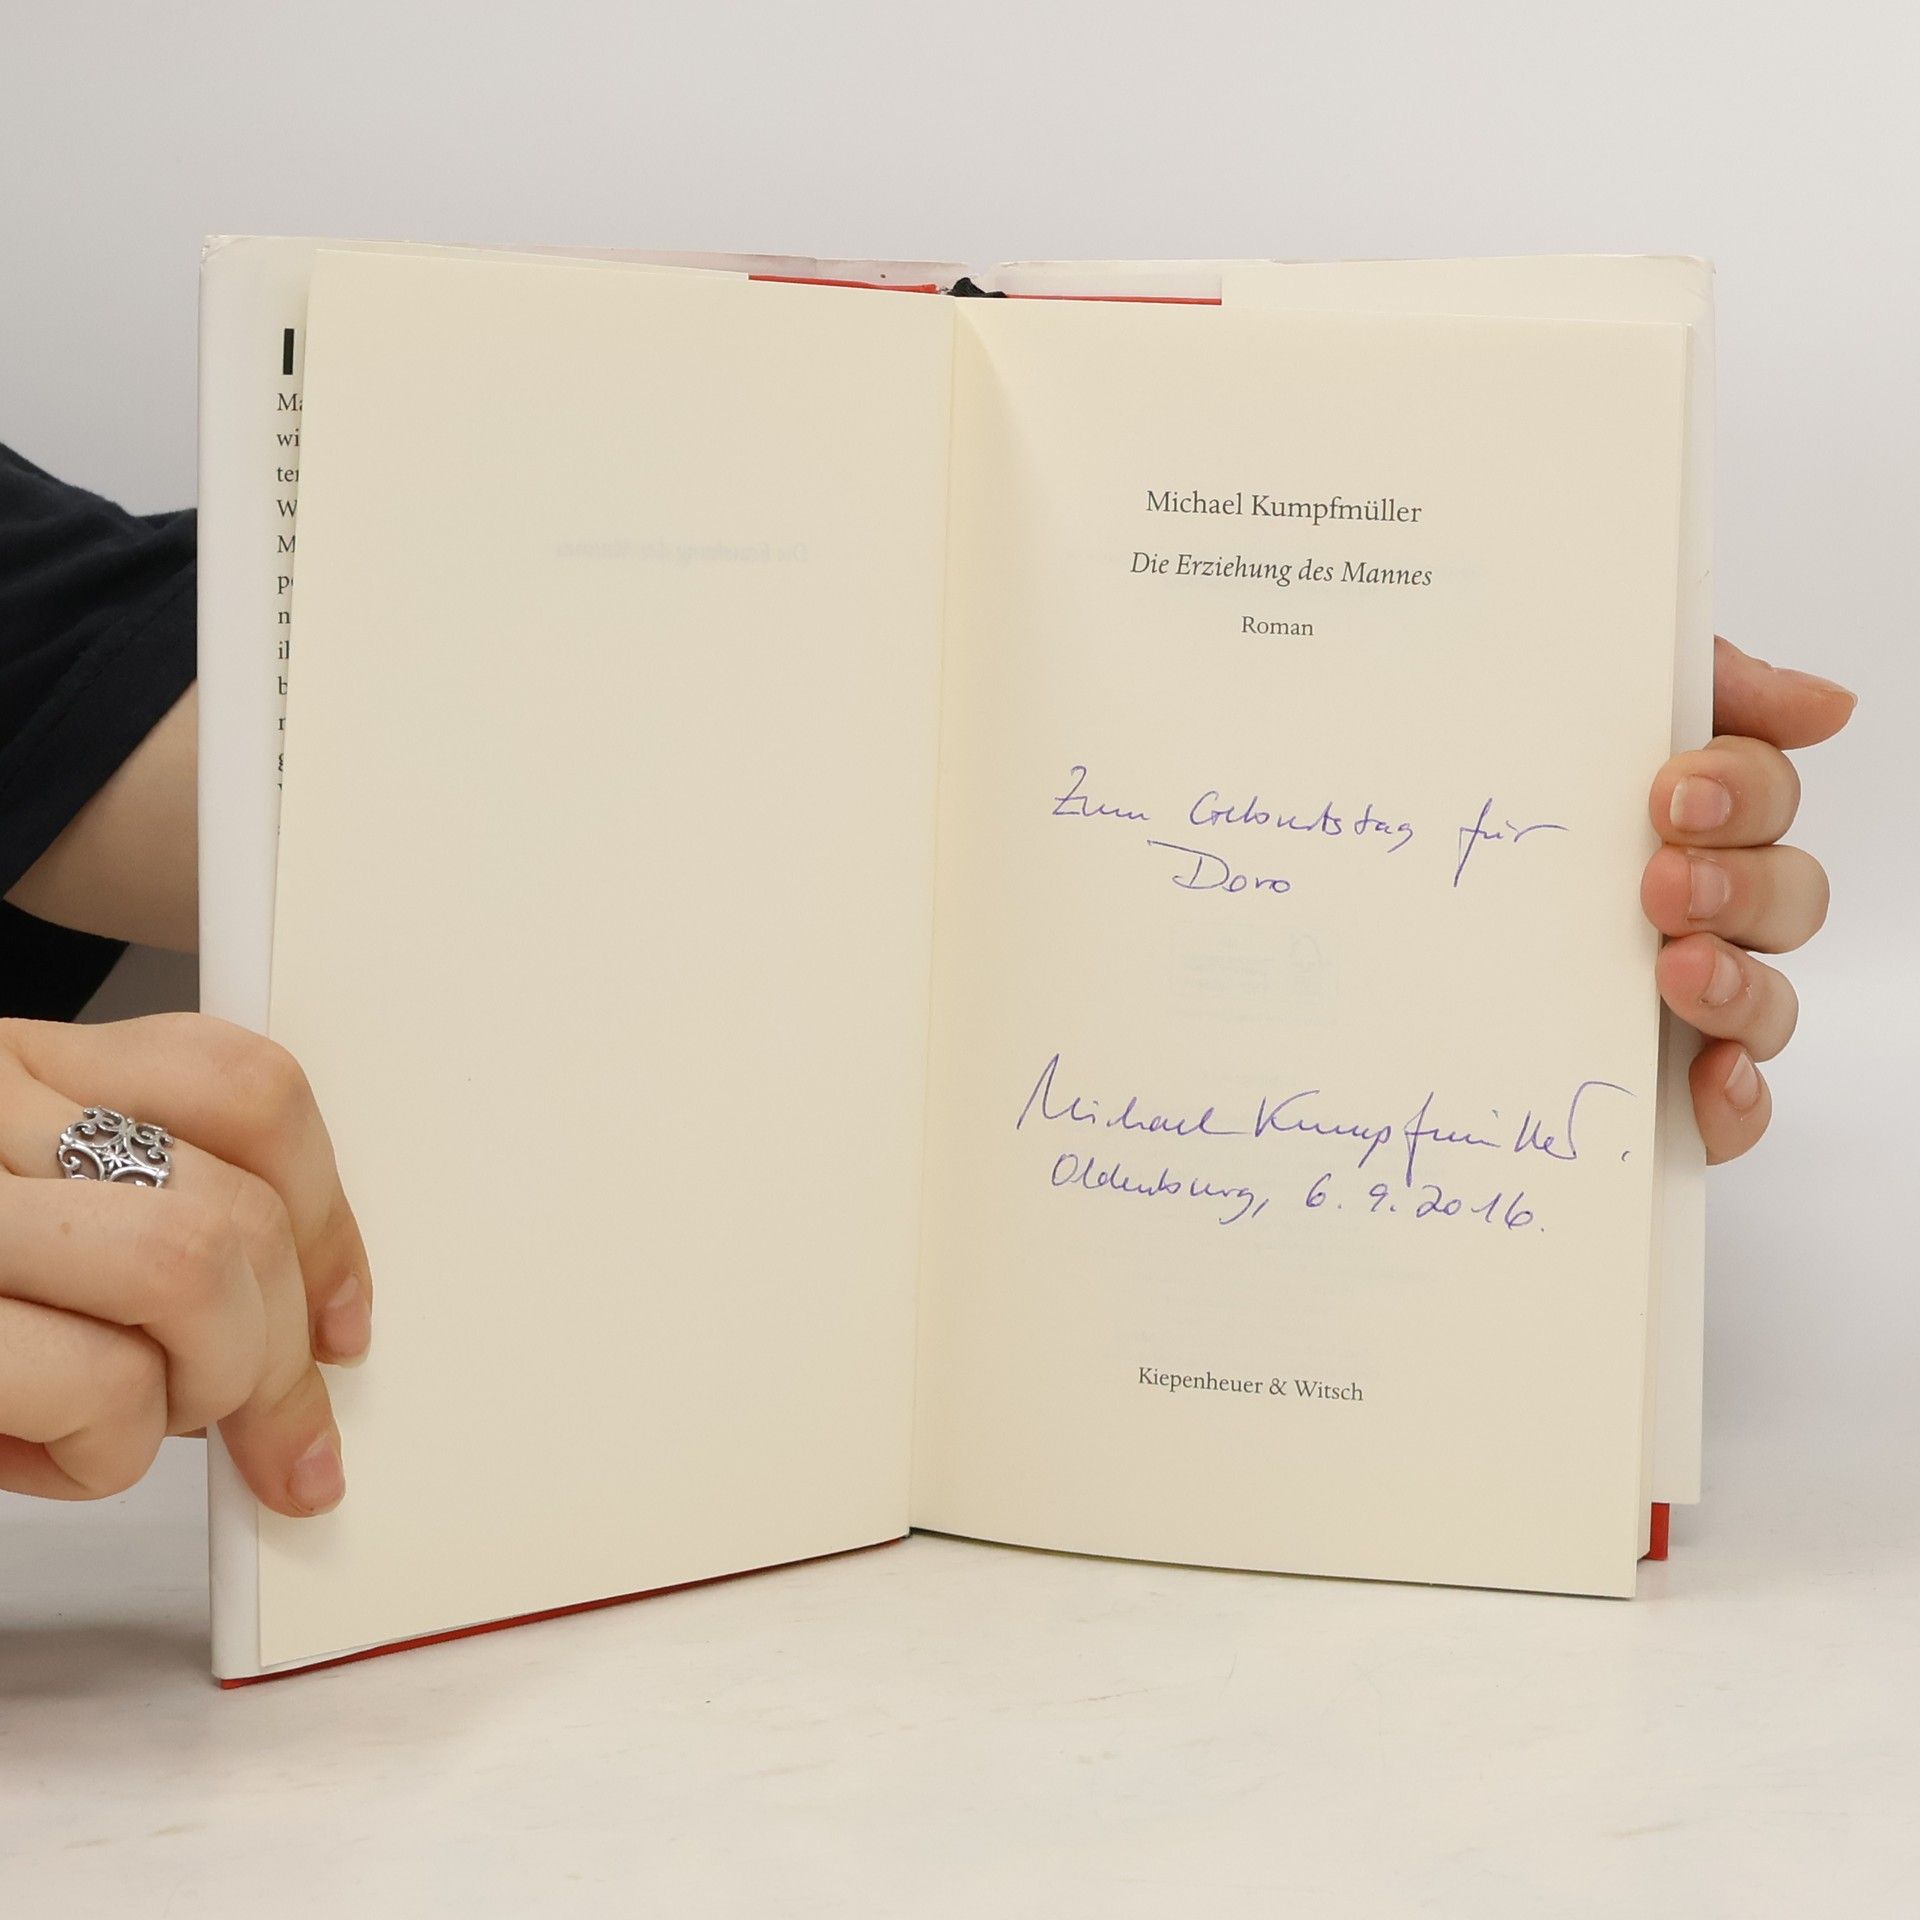 Michael Kumpfmüller
Die Erziehung des Mannes
Roman
Zum Geburtstag für
Doro
Michael Kumpfmüller.
Oldenburg, 6.9.2016.
Kiepenheuer & Witsch